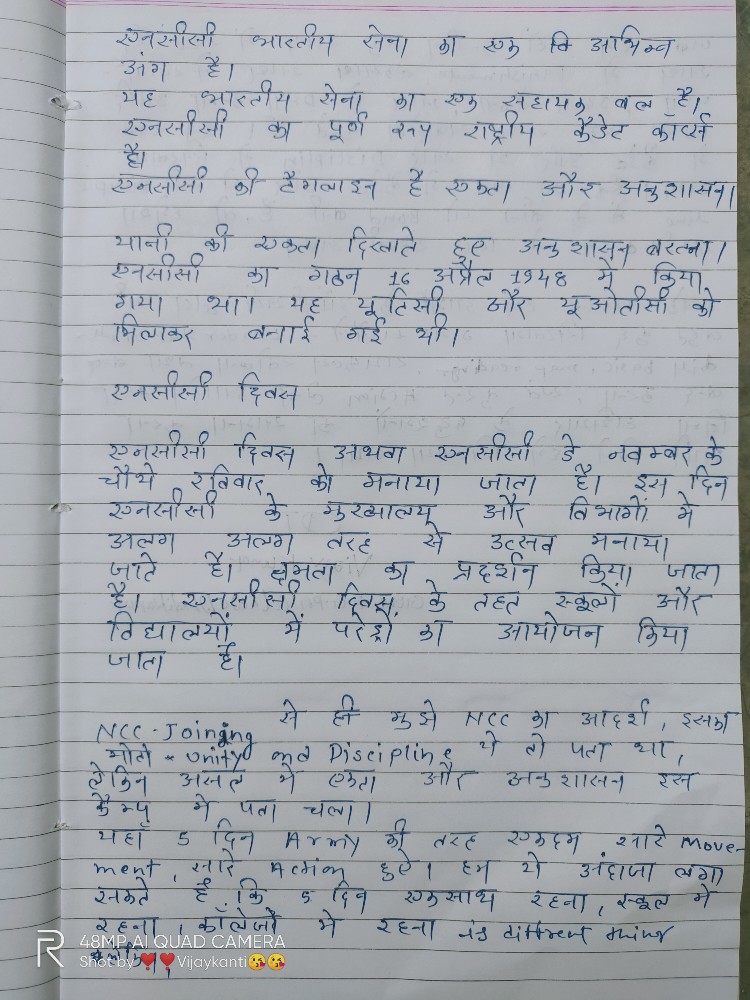 एनसीसी भारतीय सेना का एक वि अभिन्न
अंग है।
यह भारतीय सेना का एक सहायक बल है।
एनसीसी का पूर्ण रूप राष्ट्रीय कैडेट कॉर्प्स
है।
एनसीसी की टैगलाइन है एकता और अनुशासन।
यानी की एकता दिखाते हुए अनुशासन बरतना।
एनसीसी का गठन 16 अप्रैल 1948 में किया
गया था। यह यूटिसी और यूओतीसी को
मिलाकर बनाई गई थी।
एनसीसी दिवस
एनसीसी दिवस अथवा एनसीसी डे नवम्बर के
चौथे रविवार को मनाया जाता है। इस दिन
एनसीसी के मुख्यालय और विभागों में
अलग अलग तरह से उत्सव मनाया
जाते है। क्षमता का प्रदर्शन किया जाता
है। एनसीसी दिवस के तहत स्कूलों और
विद्यालयों में परेड़ों का आयोजन किया
जाता है।
NCC-Joining से ही मुझे NCC का आदर्श, इसका
मोटो - unity and Discipline ये तो पता था,
लेकिन असल में एकता और अनुशासन इस
कैम्प में पता चला।
यहाँ 5 दिन Army की तरह एकदम सारे Move-
ment, सारे Action हुए। हम ये अंदाजा लगा
सकते है कि 5 दिन एकसाथ रहना, स्कूल में
रहना, कॉलेजों में रहना is different thing
48MP AI QUAD CAMERA
Shot by ❤️❤️Vijaykanti😘😘